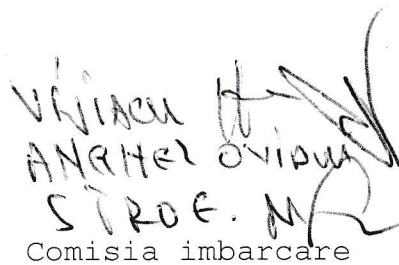 ANGHEL OVIDIU
STROE. M
Comisia imbarcare